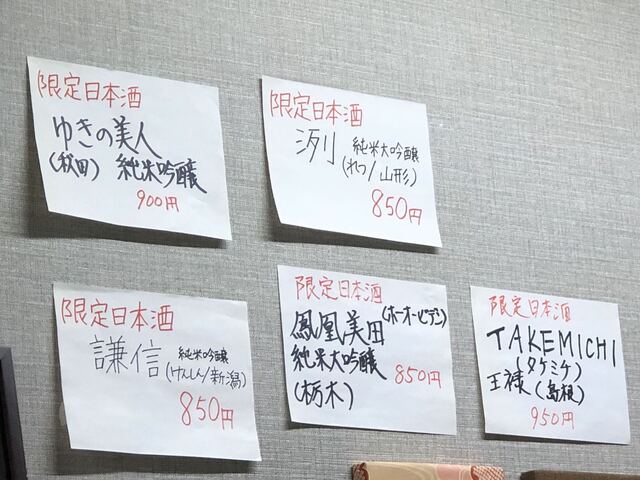 限定日本酒
ゆきの美人
(秋田) 純米吟醸
900円
限定日本酒
洌 純米大吟醸
(れつ/山形)
850円
限定日本酒
謙信 純米吟醸
(けんしん/新潟)
850円
限定日本酒
鳳凰美田 (ホーオービデン)
純米大吟醸 850円
(栃木)
限定日本酒
TAKEMICHI
(タケミチ)
王祿 (島根)
950円